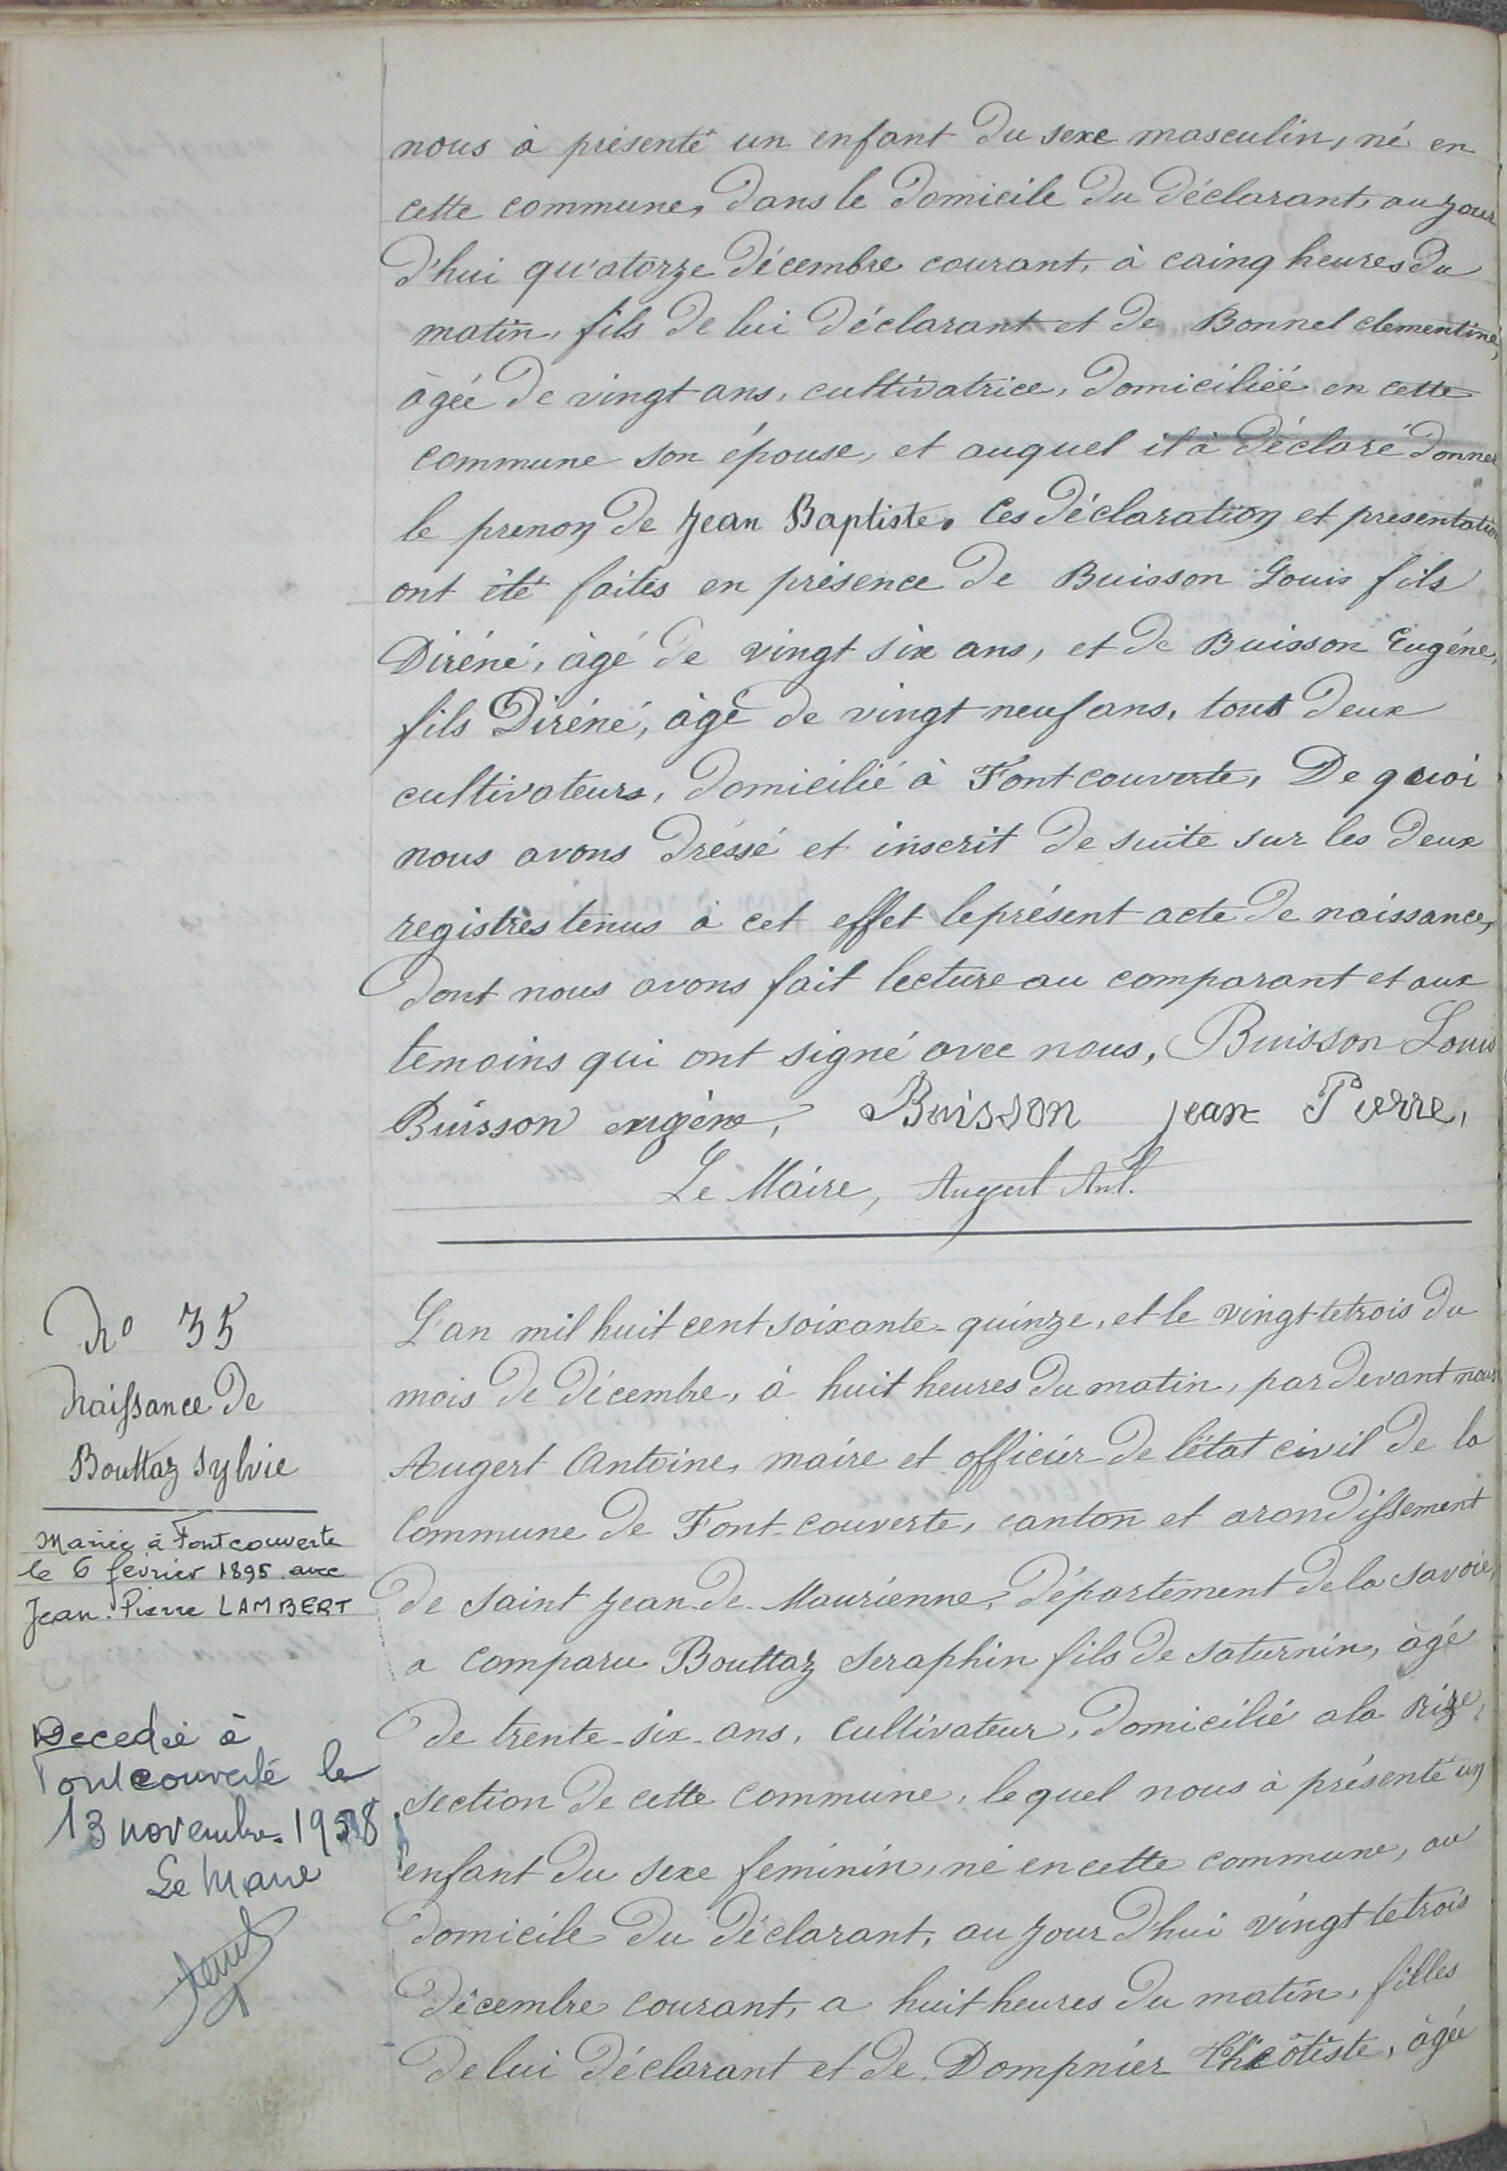 nous à présenté un enfant du sexe masculin, né en
cette commune, dans le domicile du déclarant, au jour
d'hui qu'atorze décembre courant, à cainq heures du
matin, fils de lui déclarant et de Bonnel clementine,
âgée de vingt ans, cultivatrice, domiciliéé en cette
commune son épouse, et auquel il à déclaré donner
le prenom de Jean Baptiste. Ces déclaration et presentation
ont été faites en présence de Buisson Louis fils
Diréné, âgé de vingt six ans, et de Buisson Eugéne,
fils Diréné, âgé de vingt neuf ans, tous deux
cultivateurs, domicilié à Fontcouverte, De quoi
nous avons dréssé et inscrit de suite sur les deux
registres tenus à cet effet le présent acte de naissance,
dont nous avons fait lecture au comparant et aux
temoins qui ont signé avec nous, Buisson Louis
Buisson eugène, Buisson jean Pierre,
Le Maire, Augert Ant.
No 35
Naissance de
Bouttaz Sylvie
Mariée à Fontcouverte
le 6 février 1895 avec
Jean-Pierre LAMBERT
Decedée à
Fontcouverte le
13 novembre 1958
Le Maire
L'an mil huit cent soixante-quinze, et le vingt-tetrois du
mois de décembre, à huit heures du matin, par devant nous
Augert Antoine, maire et officier de l'état civil de la
Commune de Font-couverte, canton et arondissement
de Saint Jean-de-Maurienne, département de la Savoie,
a comparu Bouttaz Seraphin fils de Saturnin, âgé
de trente-six-ans, cultivateur, domicilié a la Rize,
section de cette commune, lequel nous à présenté un
enfant du sexe feminin, né en cette commune, au
domicile du déclarant, au jour d'hui vingt tetrois
décembre courant, a huit heures du matin, filles
de lui déclarant et de Dompnier Théotiste, âgée